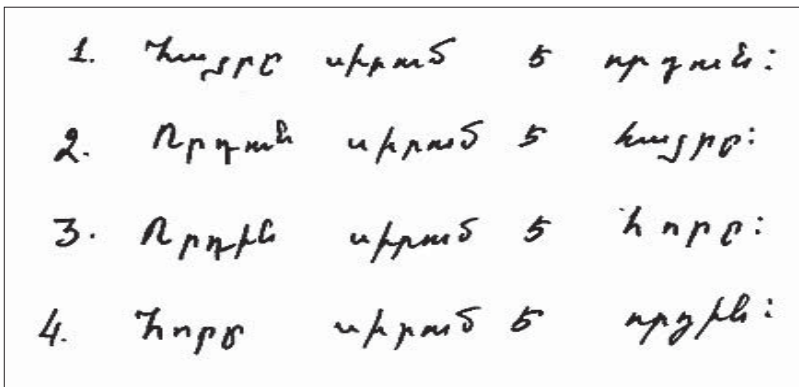 1. Հայրը սիրում է որդուն:
2. Որդուն սիրում է հայրը:
3. Որդին սիրում է հորը:
4. Հորը սիրում է որդին: